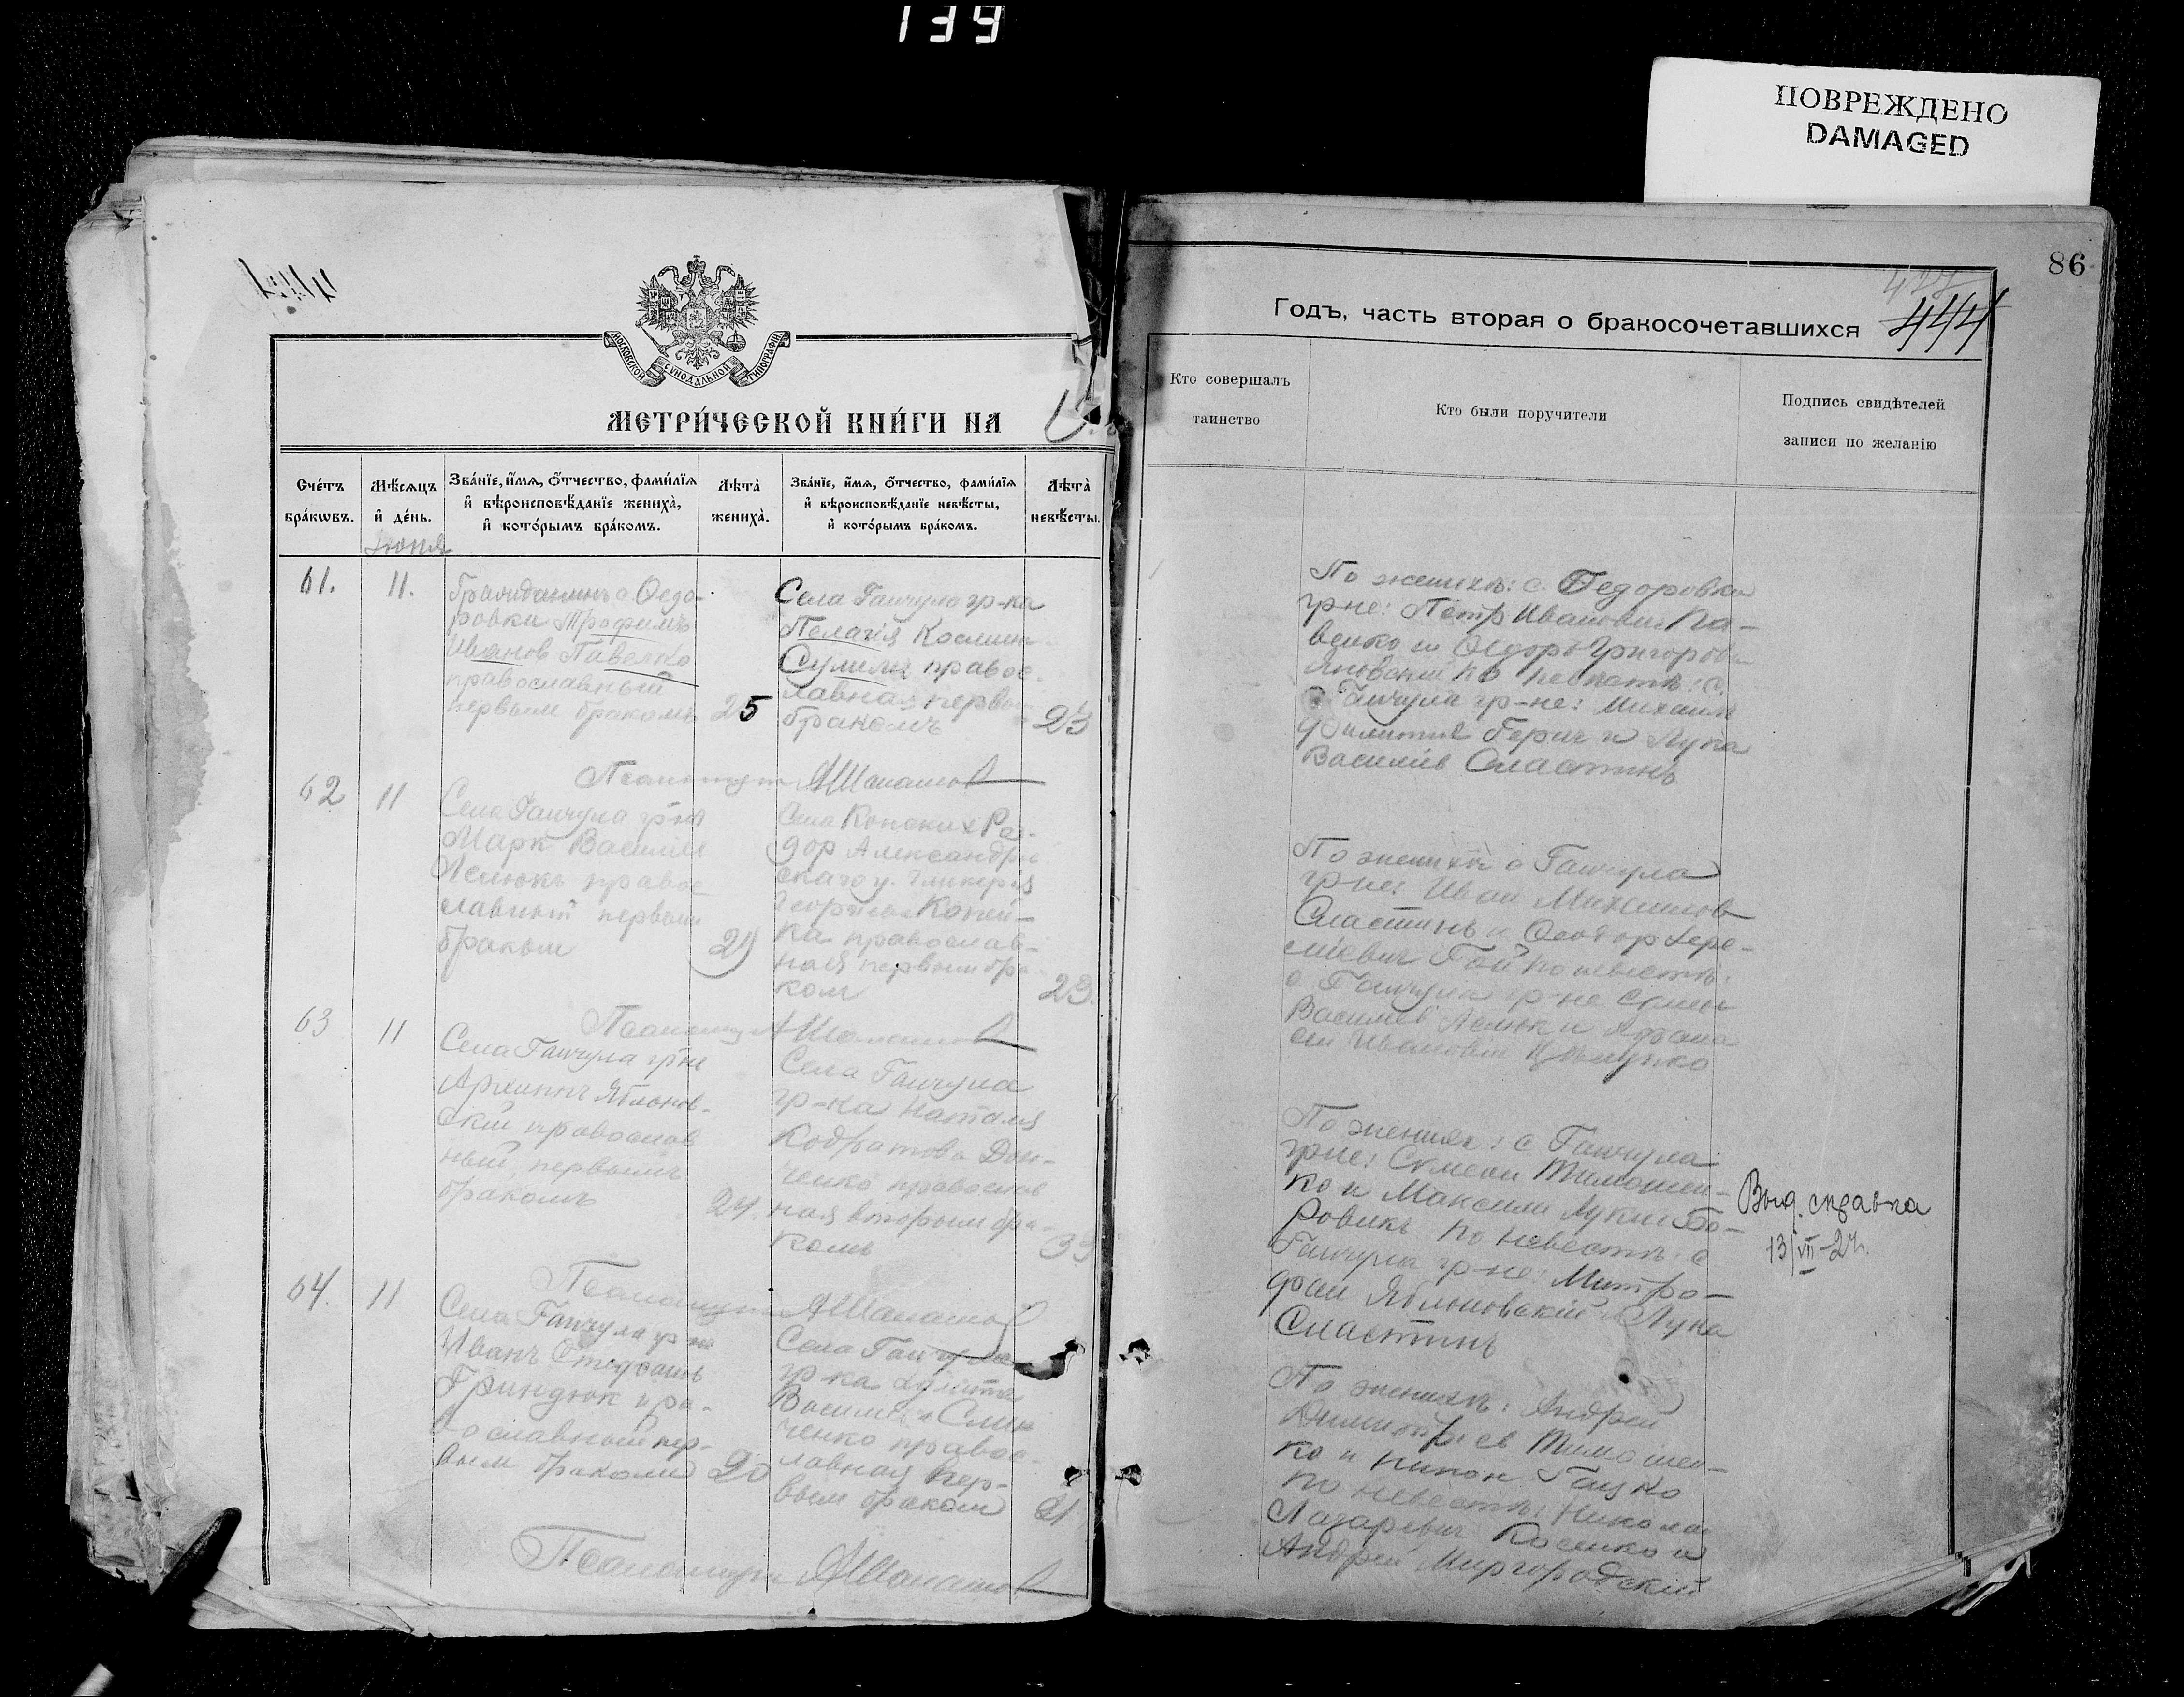 139
ПОВРЕЖДЕНО
DAMAGED
86
444
МОСКОВСКОЙ СѴНОДАЛЬНОЙ ТИПОГРАФІИ
МЕТРИ́ЧЕСКОЙ КНИ́ГИ НА
Годъ, часть вторая о бракосочетавшихся
444
Сче́тъ бра́кѡвъ.
Мѣ́сяцъ и҆ де́нь.
Зва́нїе, и҆́мѧ, ѻ҆́тчество, фами́лїѧ и҆ вѣроисповѣ́данїе жениха̀, и҆ кото́рымъ бра́комъ.
Лѣ́та̀ жениха̀.
Зва́нїе, и҆́мѧ, ѻ҆́тчество, фами́лїѧ и҆ вѣроисповѣ́данїе невѣ́сты, и҆ кото́рымъ бра́комъ.
Лѣ́та̀ невѣ́сты.
Кто совершалъ таинство
Кто были поручители
Подпись свидѣтелей записи по желанію
Іюня
61.
11.
Гражданинъ с. Ѳедо-
ровки Трофимъ
Иванов Павелко
православный
первым бракомъ
25
Села Гайчула гр-ка
Пелагія Космин
Сулима правос-
лавная первы
бракомъ
23
По женихѣ: с. Федоровки
гр-не: Петр Иванович Па-
велко и Ѳедоръ Григоров
Яновский по невѣстѣ: с.
Гайчула гр-не: Михаил
Герич и Лука
Василиев Сластинъ
Псаломщик АШапашов
62
11
Села Гайчула гр-нъ
Марк Василіев
Лелюкъ правос
славный первым
браком
29
Села Конских Раз-
дор Александров
скаго у. Гликерия
Георгіева Копей-
ка православ-
ная первым бра
ком
23.
По женихѣ с Гайчула
гр-не: Иван Михаилов
Сластинъ и Ѳеодор Ере-
міевич Гай по невѣстѣ:
с. Гайчула гр-не Семен
Василиев Лелюк и Афана
сий Иванович
Псаломщик АШапашов
63
11
Села Гайчула гр-нъ
Архиппъ Яблонов-
ский православ
ный, первымъ
бракомъ
24.
Села Гайчула
гр-ка Наталия
Кодратова Дон-
ченко православ
ная вторым бра-
комъ
33
По женихѣ: с Гайчула
гр-не: Семеон Тимошен-
ко и Максим Лукич Бо-
ровикъ по невестѣ: с
Гайчула гр-не: Митро-
фан Яблоновский и Лука
Сластинъ
Выд. справка
13/VII-24г.
Псаломщик АШапашов
64.
11
Села Гайчула гр-нъ
Иванъ Стефанов
Гриндюк пра-
вославный пер-
вым браком
20
Села Гайчула
гр-ка
Василиева Слин
ченко правос-
лавная пер-
вым браком
21
По женихѣ: Андрей
Димитриев Тимошен-
ко и Никон Гацко
по невестѣ: Николай
Лазаревич Косенко и
Андрей Миргородский
Псаломщик АШапашов